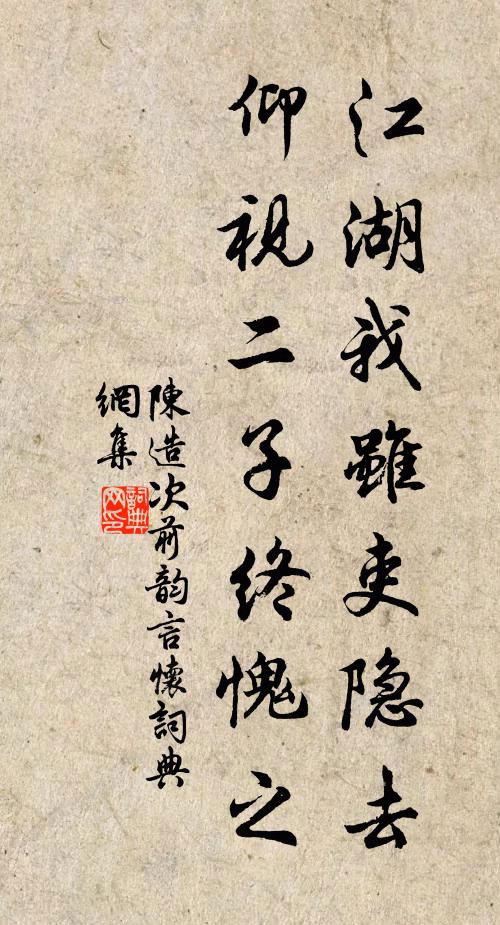 江湖我雖吏隐去
仰視二子終愧之
陳造次前韵言懷詞典
網集
詞典
网印